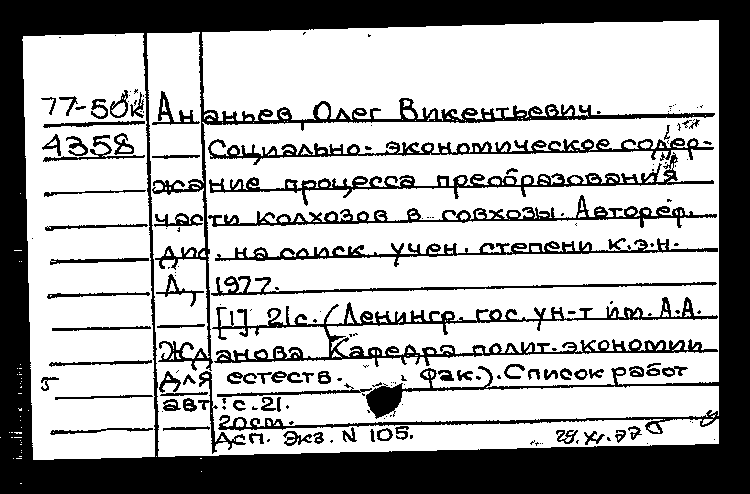 77-50к Ананьев, Олег Викентьевич.
4358 Социально-экономическое содер-
жание процесса преобразования
части колхозов в совхозы. Автореф.
дис. на соиск. учен. степени к.э.н.
Л., 1977.
[1], 21с. (Ленингр. гос. ун-т им. А.А.
Жданова. Кафедра полит. экономии
5 для естеств. фак.). Список работ
авт.: с. 21.
20см.
Дсп. Экз. N 105.